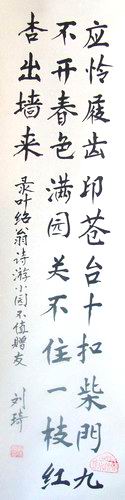 应怜屐齿印苍台十扣柴門九
不开春色满园关不住一枝红
杏出墙来
录叶绍翁诗游小园不值赠友
刘琦